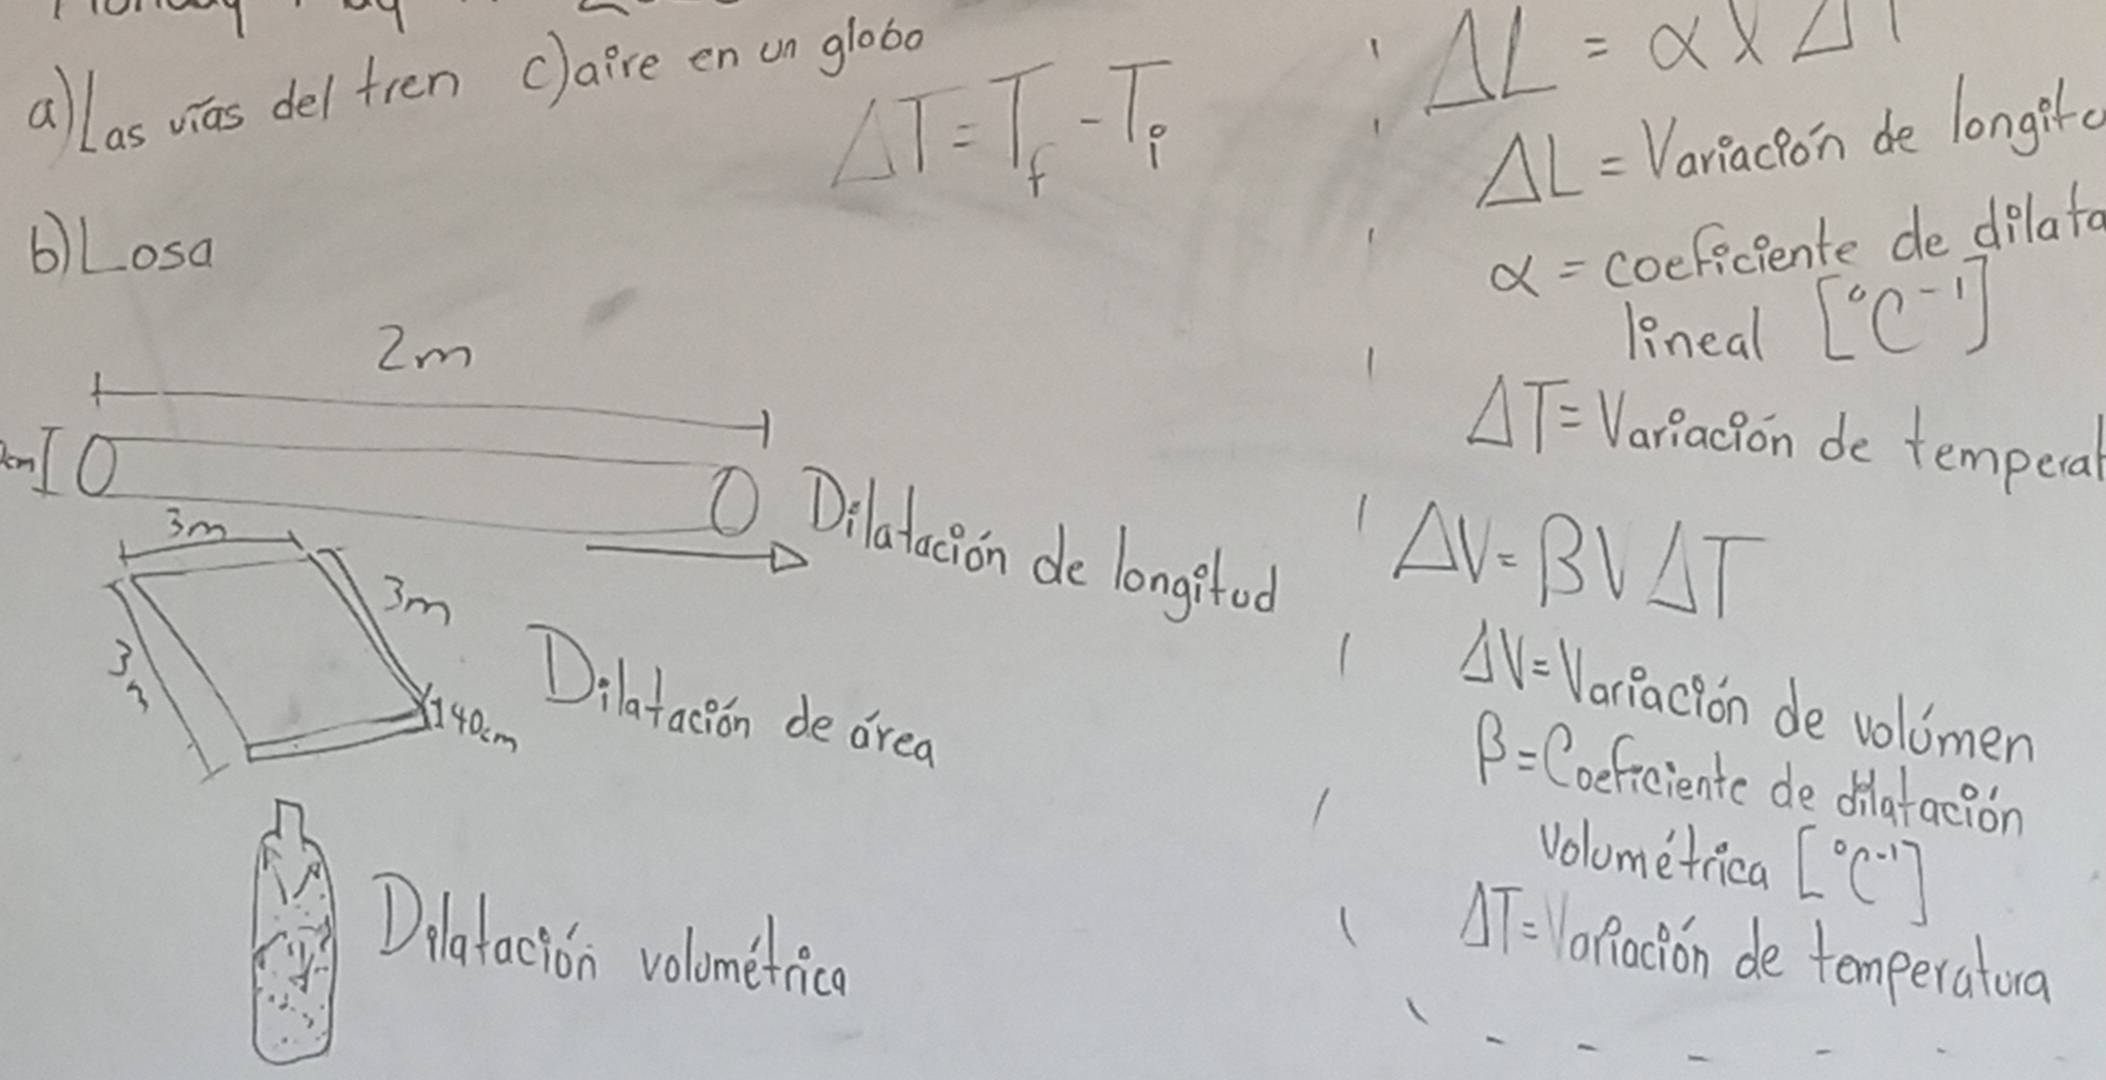 a) Las vías del tren c) aire en un globo
ΔT = Tf - Ti
b) Losa
2m
3m
3m
3m
140cm
Dilatación de longitud
Dilatación de área
Dilatación volumétrica
ΔL = α λ ΔT
ΔL = Variación de longitu
α = coeficiente de dilata
lineal [°C⁻¹]
ΔT = Variación de temperat
ΔV = βVΔT
ΔV = Variación de volúmen
β = Coeficiente de dilatación
Volumétrica [°C⁻¹]
ΔT = Variación de temperatura